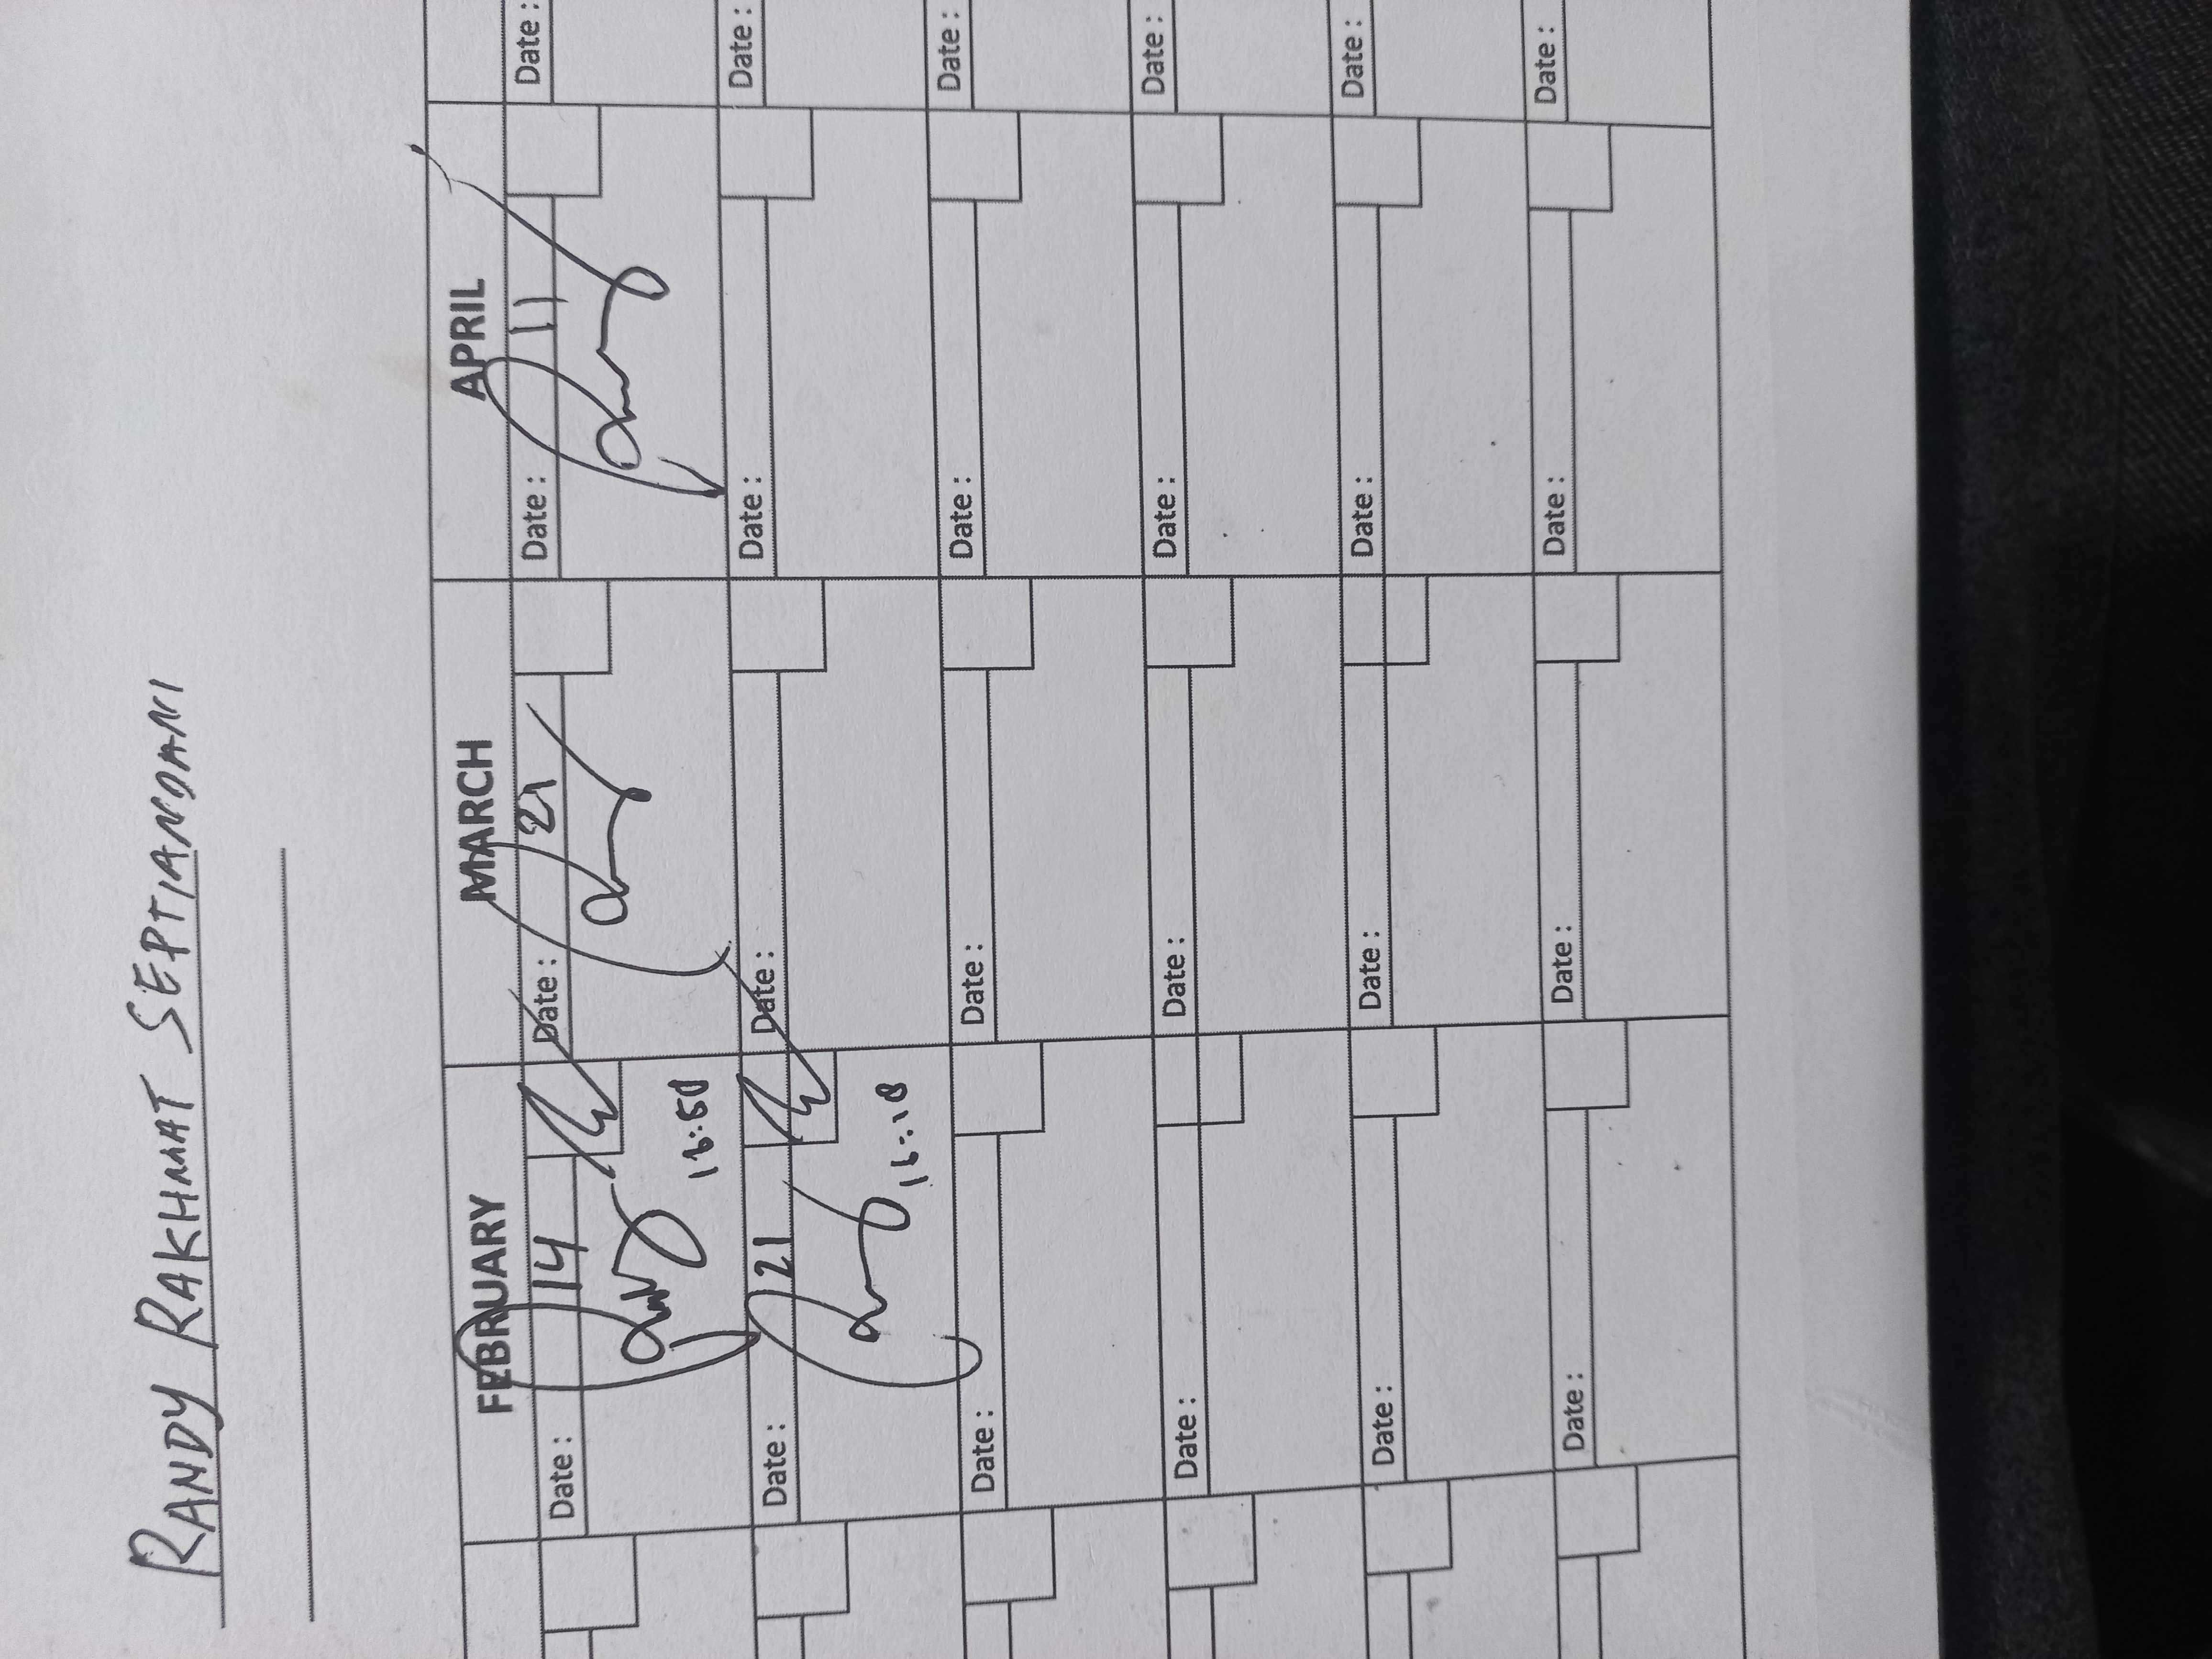 RANDY RAKHMAT SEPTIANDANI
FEBRUARY MARCH APRIL
Date : 14 Date : 21 Date : 11 Date :
16:50
Date : 21 Date : Date : Date :
16:18
Date : Date : Date : Date :
Date : Date : Date : Date :
Date : Date : Date : Date :
Date : Date : Date : Date :